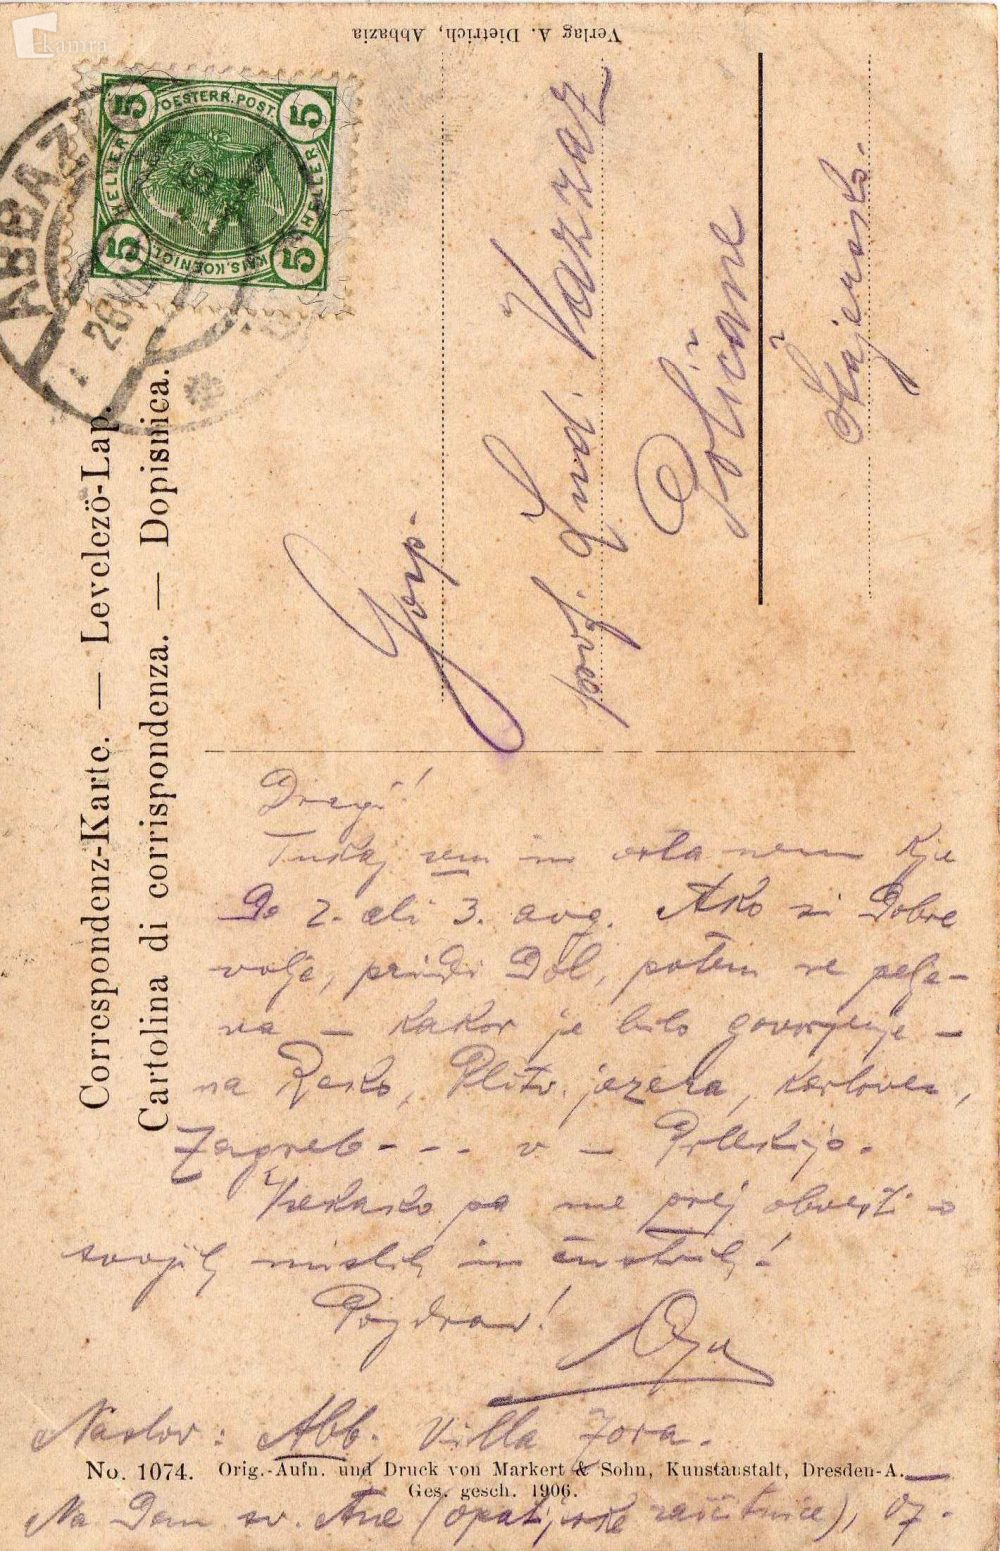 kamra
Verlag A. Dietrich, Abbazia
5 OESTERR. POST. 5
HELLER HELLER
5 KAIS. KOENIGL. 5
ABBAZIA
Correspondenz-Karte. — Levelező-Lap.
Cartolina di corrispondenza. — Dopisnica.
Gosp.
prof. Lud. Vazzaz
Poličane
Štajersko.
Dragi!
Tukaj sem in ostanem kje
do 2. ali 3. avg. Ako si dobre
volje, pridi dol, potem se pelje-
va — kakor je bilo govorjenje —
na Reko, Plitv. jezera, Karlovec,
Zagreb - - - v — Prlekijo.
Vsekako pa me prej obvesti o
svojih mislih in čustvih!
Pozdrav!
Naslov: Abb. Villa Zora.
No. 1074. Orig.-Aufn. und Druck von Markert & Sohn, Kunstanstalt, Dresden-A.
Ges. gesch. 1906.
Na dan sv. Ane (opatijske zaščitnice), 07.